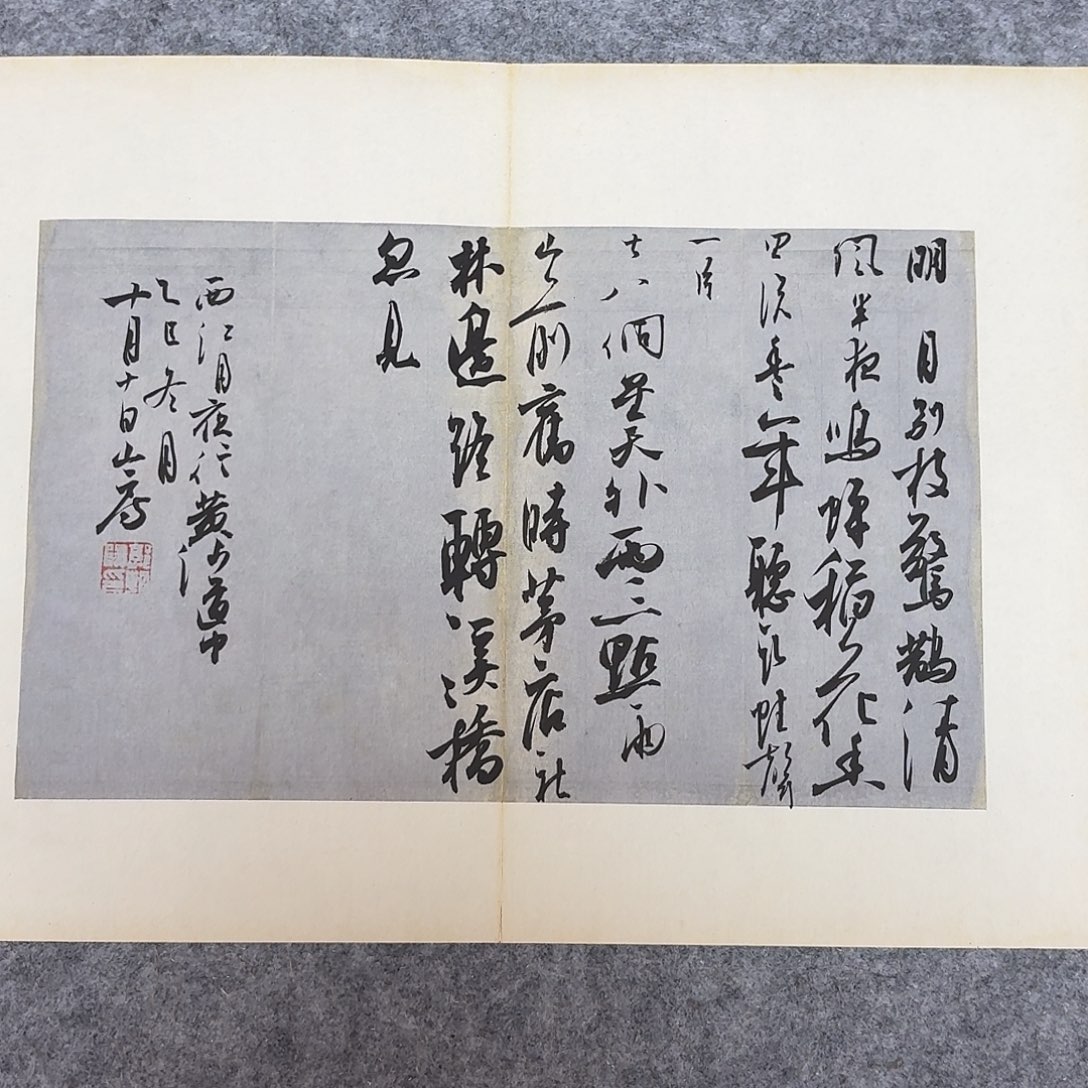 明月别枝驚鵲清
風半夜鳴蟬稻花香
里説豐年聽取蛙聲
一片
七八個星天外兩三點雨
山前舊時茅店社
林邊路轉溪橋
忽見
西江月夜行黄沙道中
乙巳冬月
十月十日